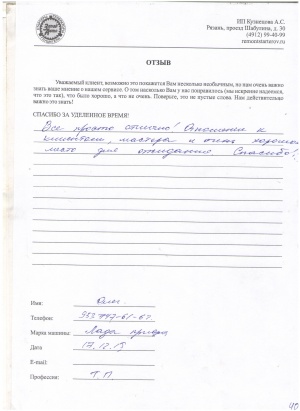 ИП Кузнецова А.С.
Рязань, проезд Шабулина, д. 36
(4912) 99-40-99
remontstarterov.ru
ОТЗЫВ
Уважаемый клиент, возможно это покажется Вам несколько необычным, но нам очень важно
знать ваше мнение о нашем сервисе. О том насколько Вам у нас понравилось (мы искренне надеемся,
что это так), что было хорошо, а что не очень. Поверьте, это не пустые слова. Нам действительно
важно это знать!
СПАСИБО ЗА УДЕЛЕННОЕ ВРЕМЯ!
Все просто отлично! Отношение к
клиентам, мастера и очень хорошее
место для ожидания Спасибо!
Имя: Олег
Телефон:
Марка машины: Лада приора
Дата 17.12.15
E-mail:
Профессия: